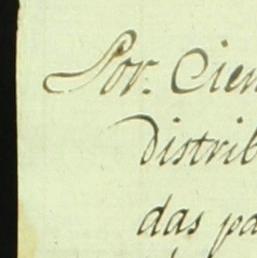 Por. Cien
distrib
das pa